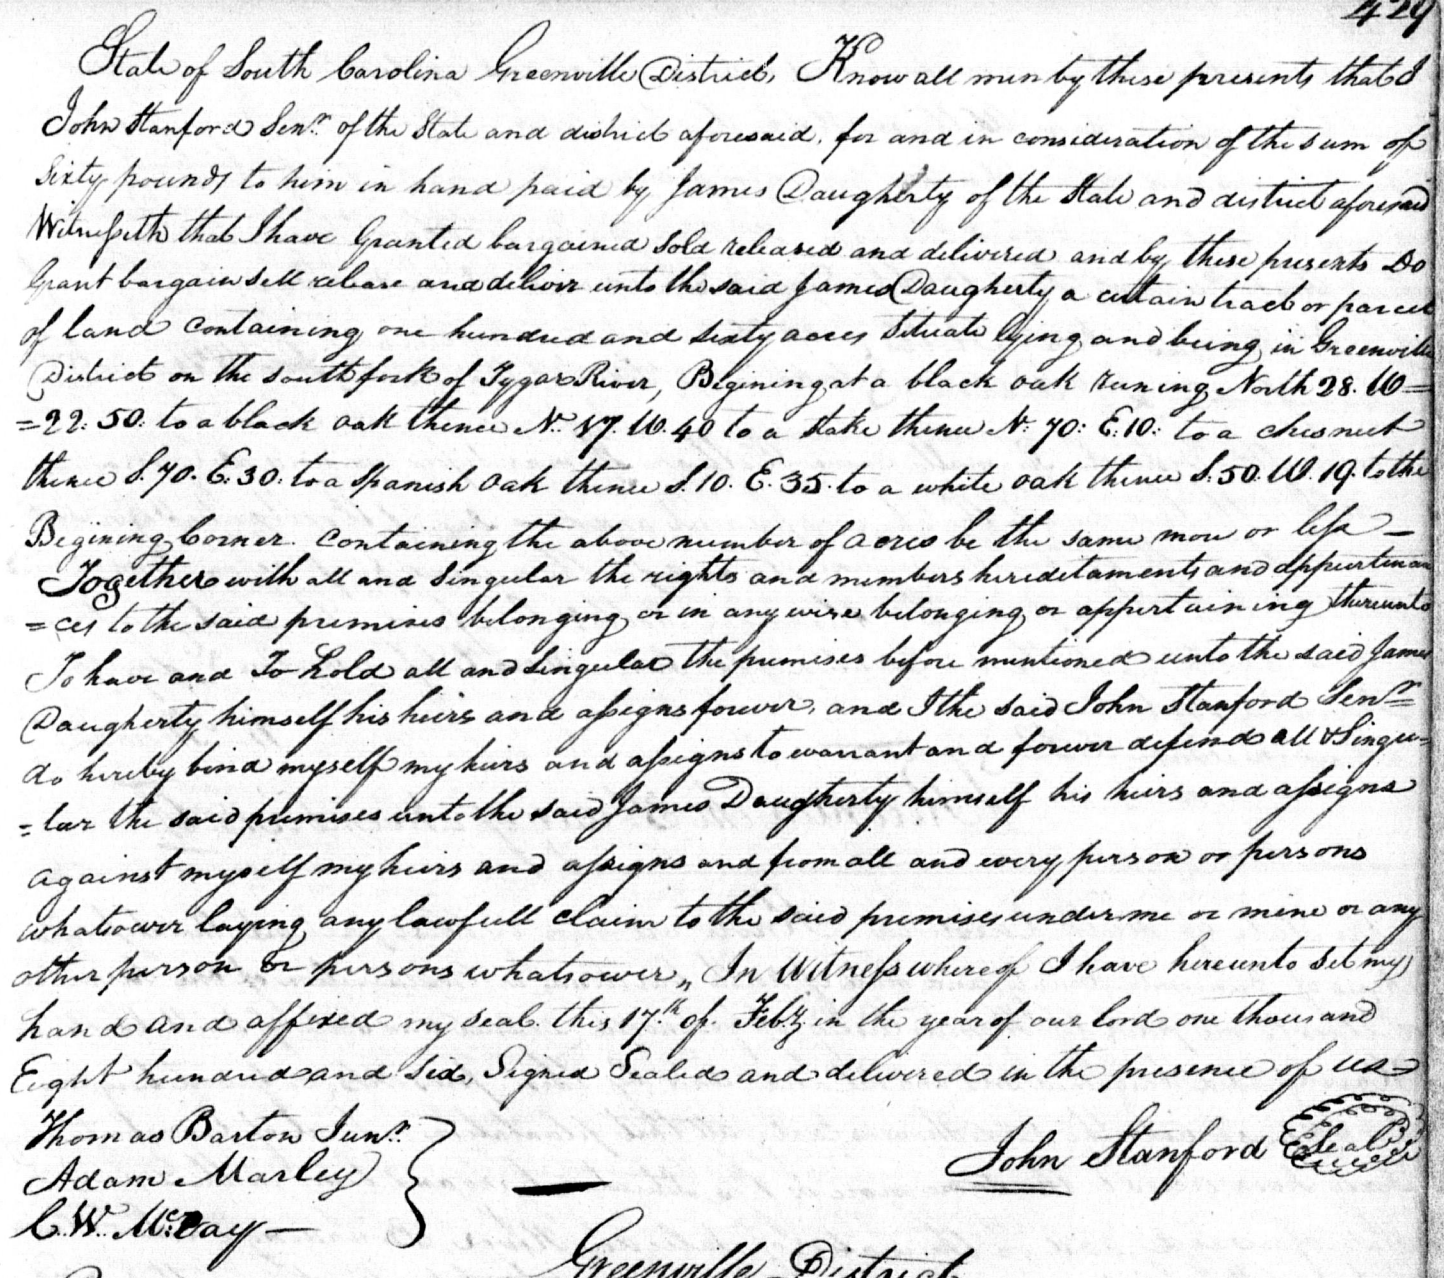 429
State of South Carolina Greenville District, Know all men by these presents that I
John Stanford Senr. of the State and district aforesaid, for and in consideration of the sum of
Sixty pounds to him in hand paid by James Daugherty of the State and district aforesaid
Witnesseth that I have Granted bargained sold released and delivered and by these presents Do
Grant bargain sell release and deliver unto the said James Daugherty a certain tract or parcel
of land containing one hundred and sixty acres Situate lying and being in Greenville
District on the south fork of Tygar River, Begining at a black oak runing North 28. W=
=22: 50: to a black oak thence N. 17. W. 40 to a Stake thence N: 70: E: 10: to a chesnut
thence S. 70. E. 30: to a Spanish Oak thence S. 10. E. 35. to a white oak thence S. 50. W. 19. to the
Begining Corner. Containing the above number of acres be the same more or less —
Together with all and Singular the rights and members hereditaments and appurtenan
=ces to the said premises belonging or in any wise belonging or appertaining thereunto
To have and To hold all and Singular the premises before mentioned unto the said James
Daugherty himself his heirs and assigns forever, and I the said John Stanford Senr=
do hereby bind myself my heirs and assigns to warrant and forever defend all & Singu=
=lar the said premises unto the said James Daugherty himself his heirs and assigns
against myself my heirs and assigns and from all and every person or persons
whatsoever laying any lawfull claim to the said premises under me or mine or any
other person or persons whatsoever,, In Witness whereof I have hereunto set my
hand and affixed my seal. this 17.th of. Feby. in the year of our lord one thousand
Eight hundred and Six, Signed Sealed and delivered in the presence of us
Thomas Barton Junr.
Adam Marley
John Stanford Seal
C. W. McCay —
Greenville District